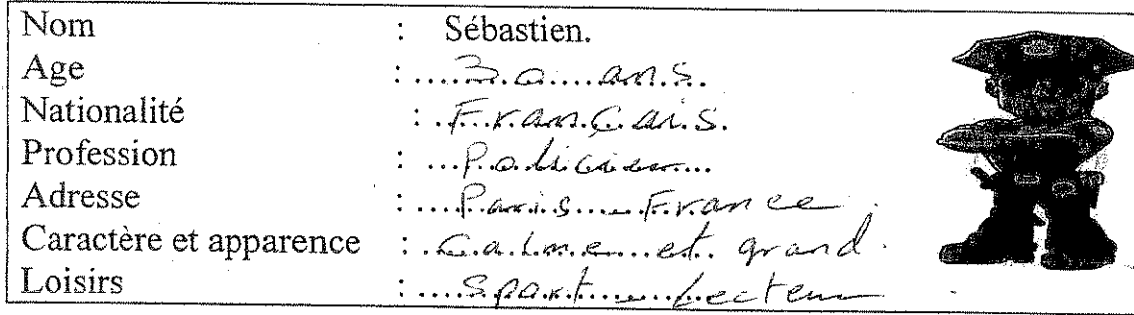 Nom : Sébastien.
Age : 30 ans.
Nationalité : Français.
Profession : Policier
Adresse : Paris France.
Caractère et apparence : Calme et grand.
Loisirs : Sport Lecteur